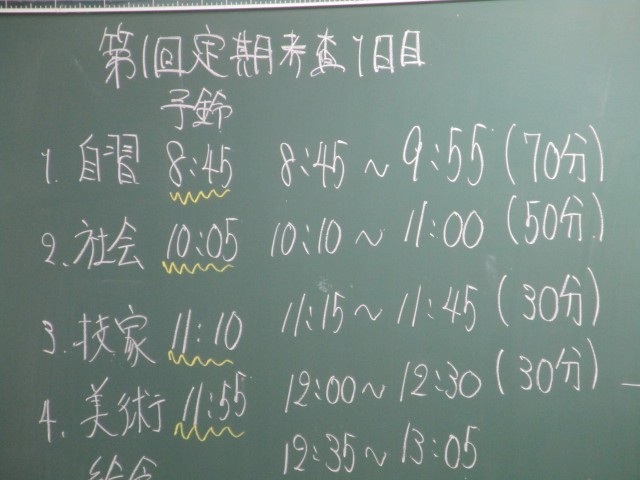 第1回定期考査1日目
予鈴
1. 自習 8:45 8:45 ~ 9:55 (70分)
2. 社会 10:05 10:10 ~ 11:00 (50分)
3. 技家 11:10 11:15 ~ 11:45 (30分)
4. 美術 11:55 12:00 ~ 12:30 (30分)
給食 12:35 ~ 13:05